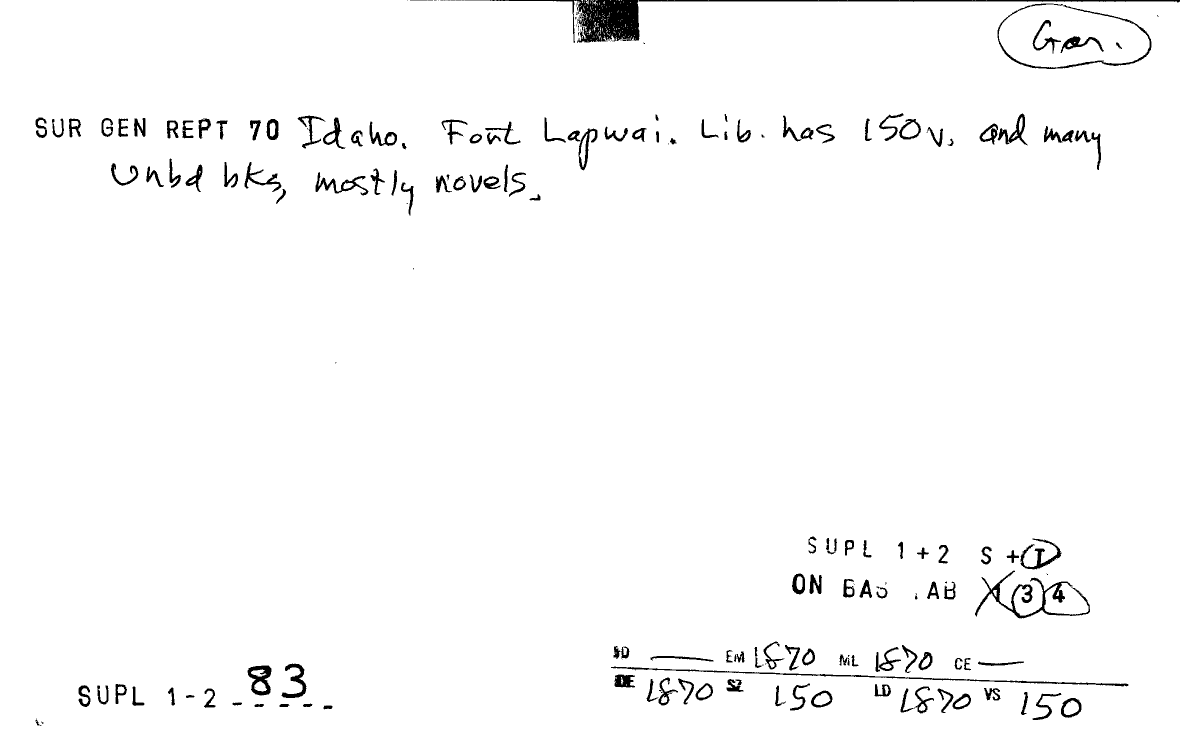 Gen.
SUR GEN REPT 70 Idaho. Fort Lapwai. Lib. has 150v. and many
unbd bks, mostly novels.
SUPL 1+2 S+I
ON BAS .AB 1 3 4
SD — EM 1870 ML 1870 CE —
DE 1870 SZ 150 LD 1870 VS 150
SUPL 1-2 83